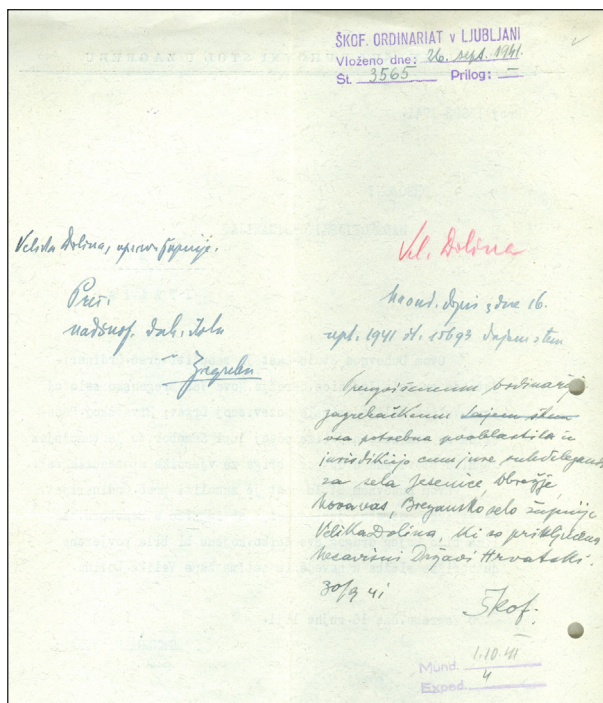 ŠKOF. ORDINARIAT v LJUBLJANI
Vloženo dne: 26. sept. 1941.
Št. 3565 Prilog: —
Velika Dolina, uprava župnije.
Vel. Dolina
Prev.
nadškof. duh. stolu
Zagrebu
Na ond. dopis z dne 16.
sept. 1941 št. dajem s tem
Prevzvišenemu ordinariju
zagrebačkemu dajem s tem
vsa potrebna pooblastila in
jurisdikcijo cum jure subdelegandi
za sela Jesenice, Obrežje,
Nova vas, Bregansko selo župnije
Velika Dolina, ki so priključena
Nezavisni Državi Hrvatski.
30/9 41
Škof.
Mund. 1.10.41
Exped. 4